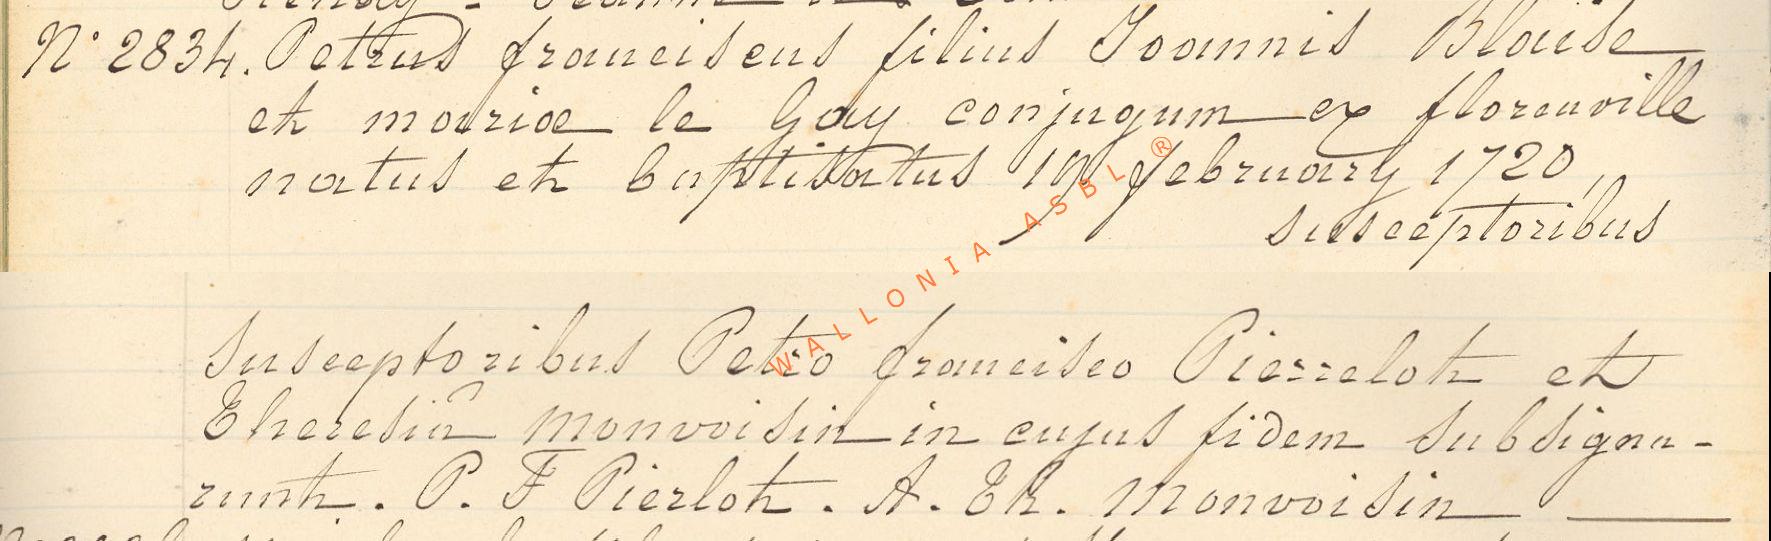 N° 2834. Petrus franciscus filius Joannis Blaise
et mariæ le Gay conjugum ex florenville
natus et baptisatus 19 february 1720,
susceptoribus
susceptoribus Petro francisco Pierrelot et
Theresia monvoisin in cujus fidem subsigna-
runt. P. F Pierlot. A. Th. Monvoisin
WALLONIA ASBL ®